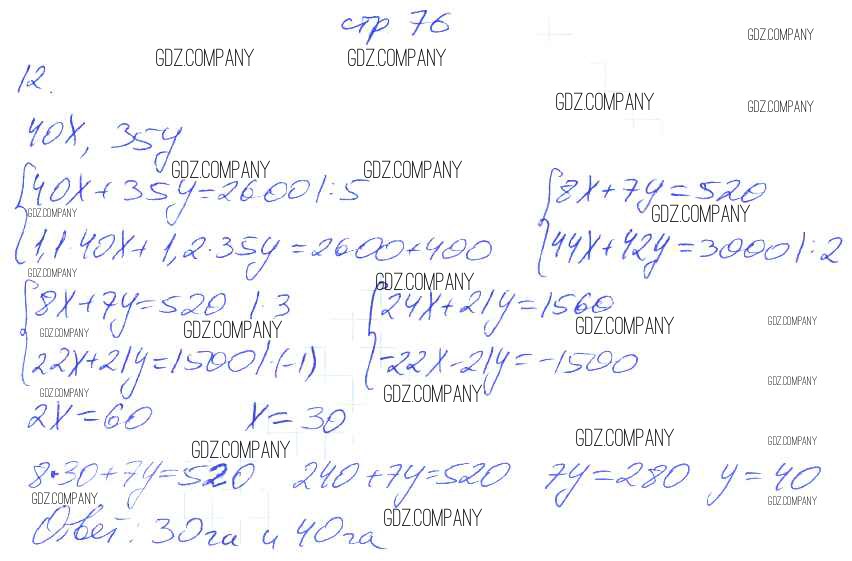 стр 76
GDZ.COMPANY GDZ.COMPANY GDZ.COMPANY
12.
GDZ.COMPANY GDZ.COMPANY
40x, 35y
GDZ.COMPANY GDZ.COMPANY
40x+35y=2600 |:5 8x+7y=520
GDZ.COMPANY GDZ.COMPANY
1,1·40x+1,2·35y=2600+400 44x+42y=3000 |:2
GDZ.COMPANY GDZ.COMPANY
8x+7y=520 |·3 24x+21y=1560
GDZ.COMPANY GDZ.COMPANY GDZ.COMPANY GDZ.COMPANY
22x+21y=1500 |·(-1) -22x-21y=-1500
GDZ.COMPANY GDZ.COMPANY GDZ.COMPANY
2x=60 x=30
GDZ.COMPANY GDZ.COMPANY GDZ.COMPANY
8·30+7y=520 240+7y=520 7y=280 y=40
GDZ.COMPANY GDZ.COMPANY
Ответ: 30га и 40га
GDZ.COMPANY